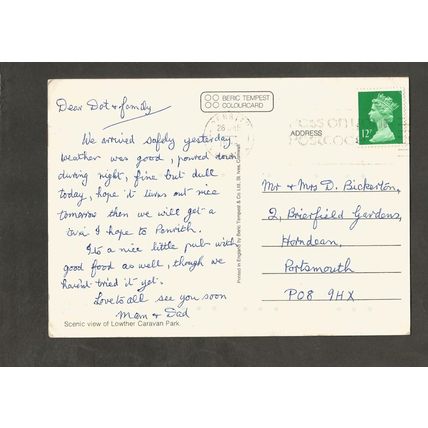 Dear Dot & family
We arrived safely yesterday
weather was good, poured down
during night, fine but dull
today, hope it turns out nice
tomorrow then we will get a
taxi I hope to Penrith.
Its a nice little pub with
good food as well, though we
havent tried it yet.
Love to all see you soon
Mam & Dad
Scenic view of Lowther Caravan Park.
BERIC TEMPEST
COLOURCARD
Printed in England by Beric Tempest & Co. Ltd., St. Ives, Cornwall
POSTCODE
12P
ADDRESS
Mr & Mrs D. Bickerton,
2, Brierfield Gardens,
Horndean,
Portsmouth
PO8 9HX